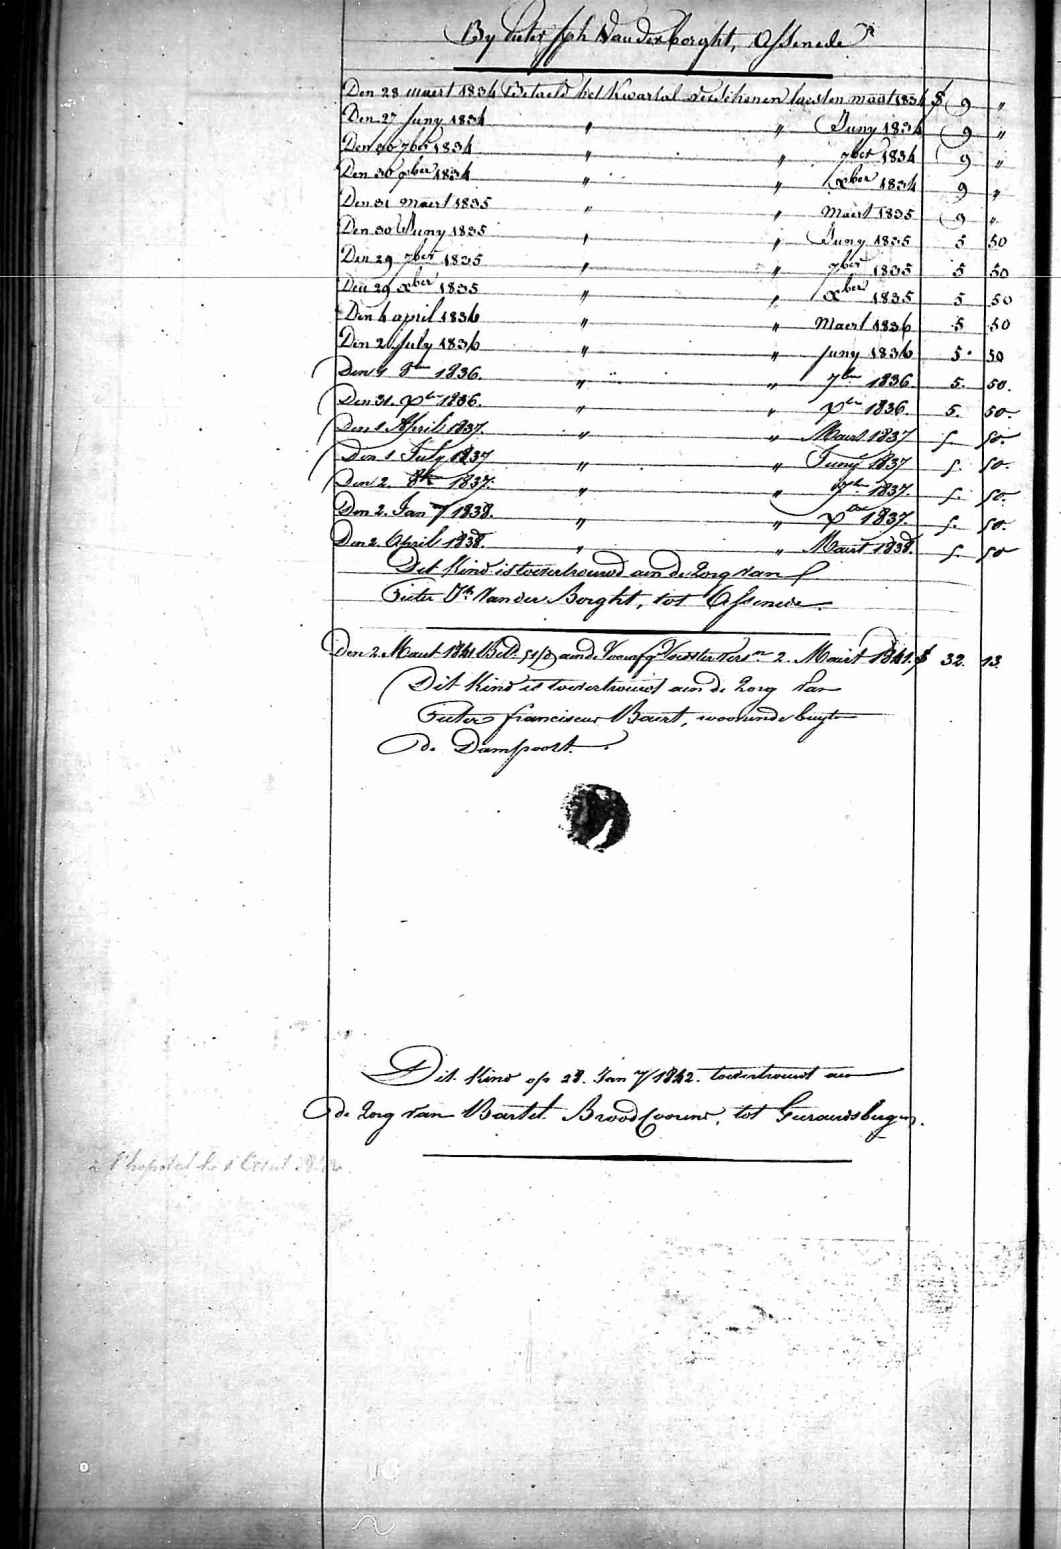 By Pieter Jph Vanderborght, Assenede
Den 28 maert 1834 Betaeld het kwartal verschenen laesten maart 1834 f 9 "
Den 27 Juny 1834 " " Juny 1834 9 "
Den 30 7ber 1834 " " 7ber 1834 9 "
Den 30 xber 1834 " " xber 1834 9 "
Den 31 maert 1835 " " maert 1835 9 "
Den 30 Juny 1835 " " Juny 1835 5 50
Den 29 7ber 1835 " " 7ber 1835 5 50
Den 29 xber 1835 " " xber 1835 5 50
Den 4 april 1836 " " Maert 1836 5 50
Den 2 July 1836 " " Juny 1836 5. 50
Den 1 8ber 1836. " " 7ber 1836. 5. 50.
Den 31. xber 1836. " " xber 1836. 5. 50.
Den 1 April 1837. " " Maert 1837 5. 50.
Den 1 July 1837 " " Juny 1837 5. 50.
Den 2. 8ber 1837. " " 7ber 1837. 5. 50.
Den 2. Jan y 1838. " " xber 1837. 5. 50.
Den 2. April 1838. " " Maert 1838. 5. 50
Dit kind is toevertrouwd aen de zorg van
Pieter Jh Van der Borght, tot Assenede.
Den 2. Maert 1841 Betd aende Voedster 2. Maert 1841. f 32. 13.
Dit kind is toevertrouwt aen de zorg van
Pieter franciscus Baert, woonende buyten
de Dampoort.
Dit kind op 28. Jan y 1842. toevertrouwt aen
de zorg van Bartel. Broodcoorens, tot Geeraerdsbergen.
a l'hopital le 1